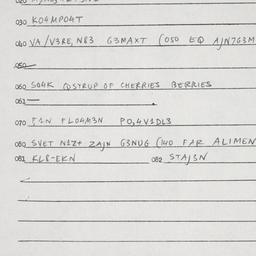 030 KO4MPO4T
040 VA/V3RE, N83 G3MAXT (050 EQ AJN7G3M
050
060 SO4K DSYRUP OF CHERRIES BERRIES
061 —
070 FLO4M3N PO,4V1DL3
080 SVET N1Z+ ZAJN G3NUG (140 FAR ALIMEN
081 KL8-EKN 082 STAJ3N